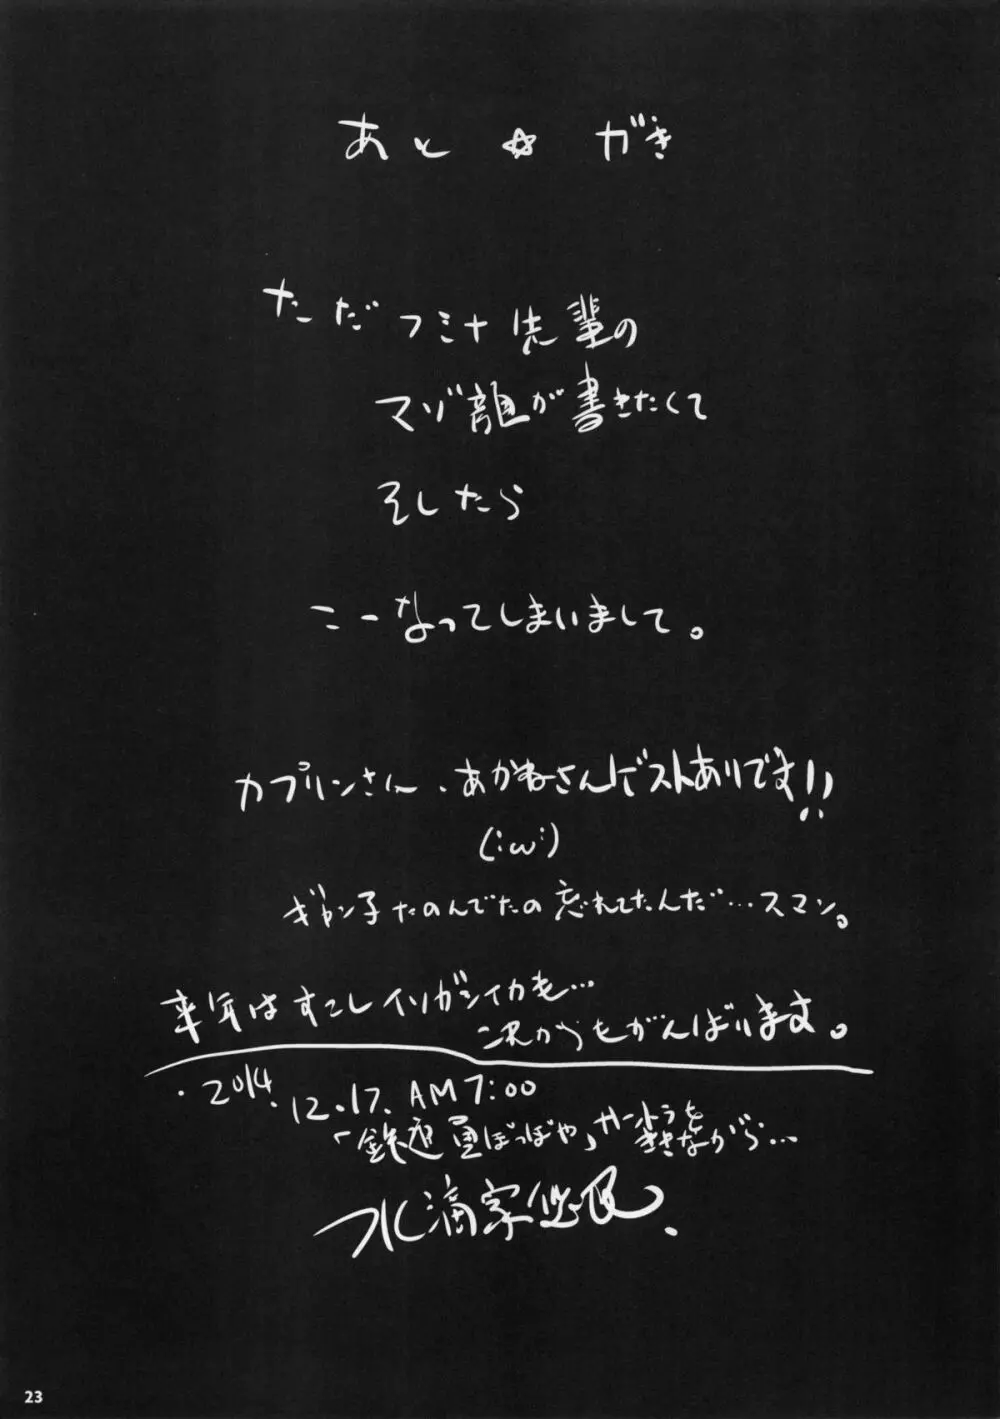 あと☆がき
ただフミナ先輩の
マゾ顔が書きたくて
そしたら
こーなってしまいまして。
カプリンさん、あかねさんゲストありです!!
(:ω:)
ギャン子たのんでたの忘れてたんだ…スマン。
来年はすこしイソガシイカも…
これからもがんばります。
・2014.
12.17. AM7:00
「鉄道員ぽっぽや」サートラを
ききながら…
水滴家
23